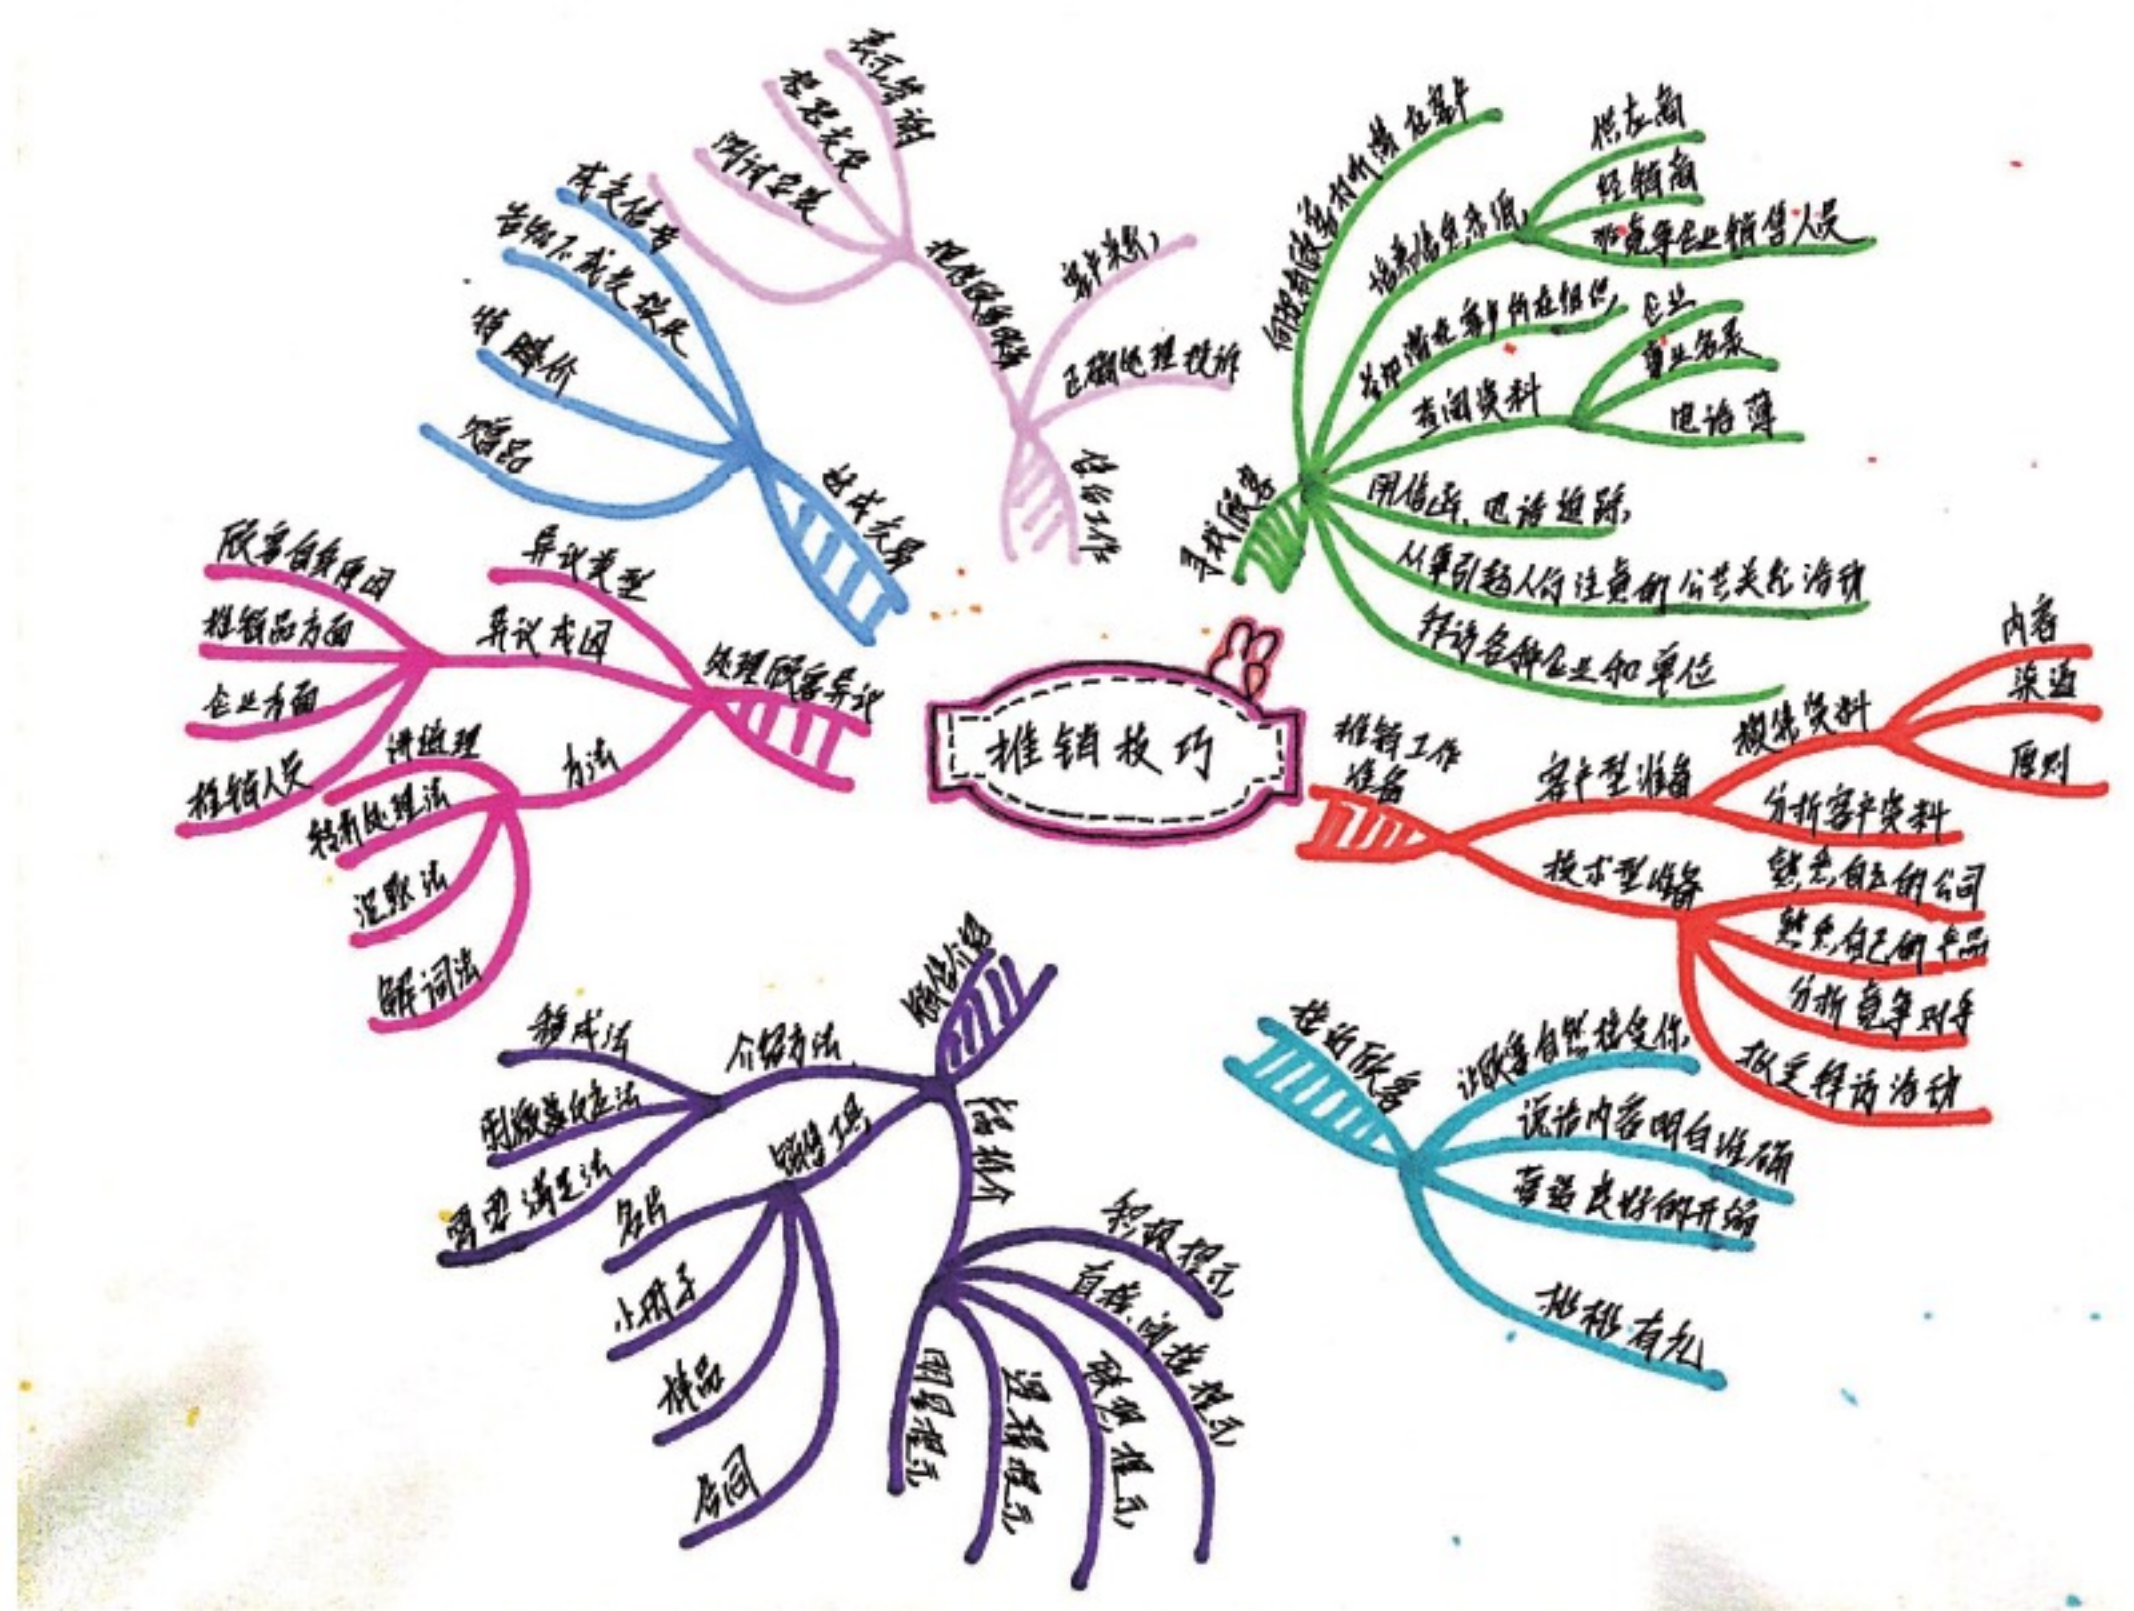 推销技巧
寻找顾客
向现有顾客打听潜在客户
培养信息来源
供应商
经销商
非竞争企业销售人员
查阅资料
企业
事业名录
电话薄
用信函、电话追踪
从事引起人们注意的公共关系活动
拜访各种企业和单位
推销工作
准备
客户型准备
搜集资料
内容
渠道
原则
分析客户资料
技术型准备
熟悉自己的公司
熟悉自己的产品
分析竞争对手
拟定拜访活动
接近顾客
让顾客自然接受你
说话内容明白准确
营造良好的开端
彬彬有礼
销售介绍
介绍方法
销售工具
名片
小册子
样品
合同
积极提示
直接、间接提示
联想提示
逻辑提示
明星提示
处理顾客异议
异议类型
异议成因
顾客自身原因
推销品方面
企业方面
推销人员
方法
讲道理
转折处理法
沉默法
达成交易
成交信号
告知不成交损失
特降价
售后工作
提供顾客服务
表示答谢
正确处理投诉